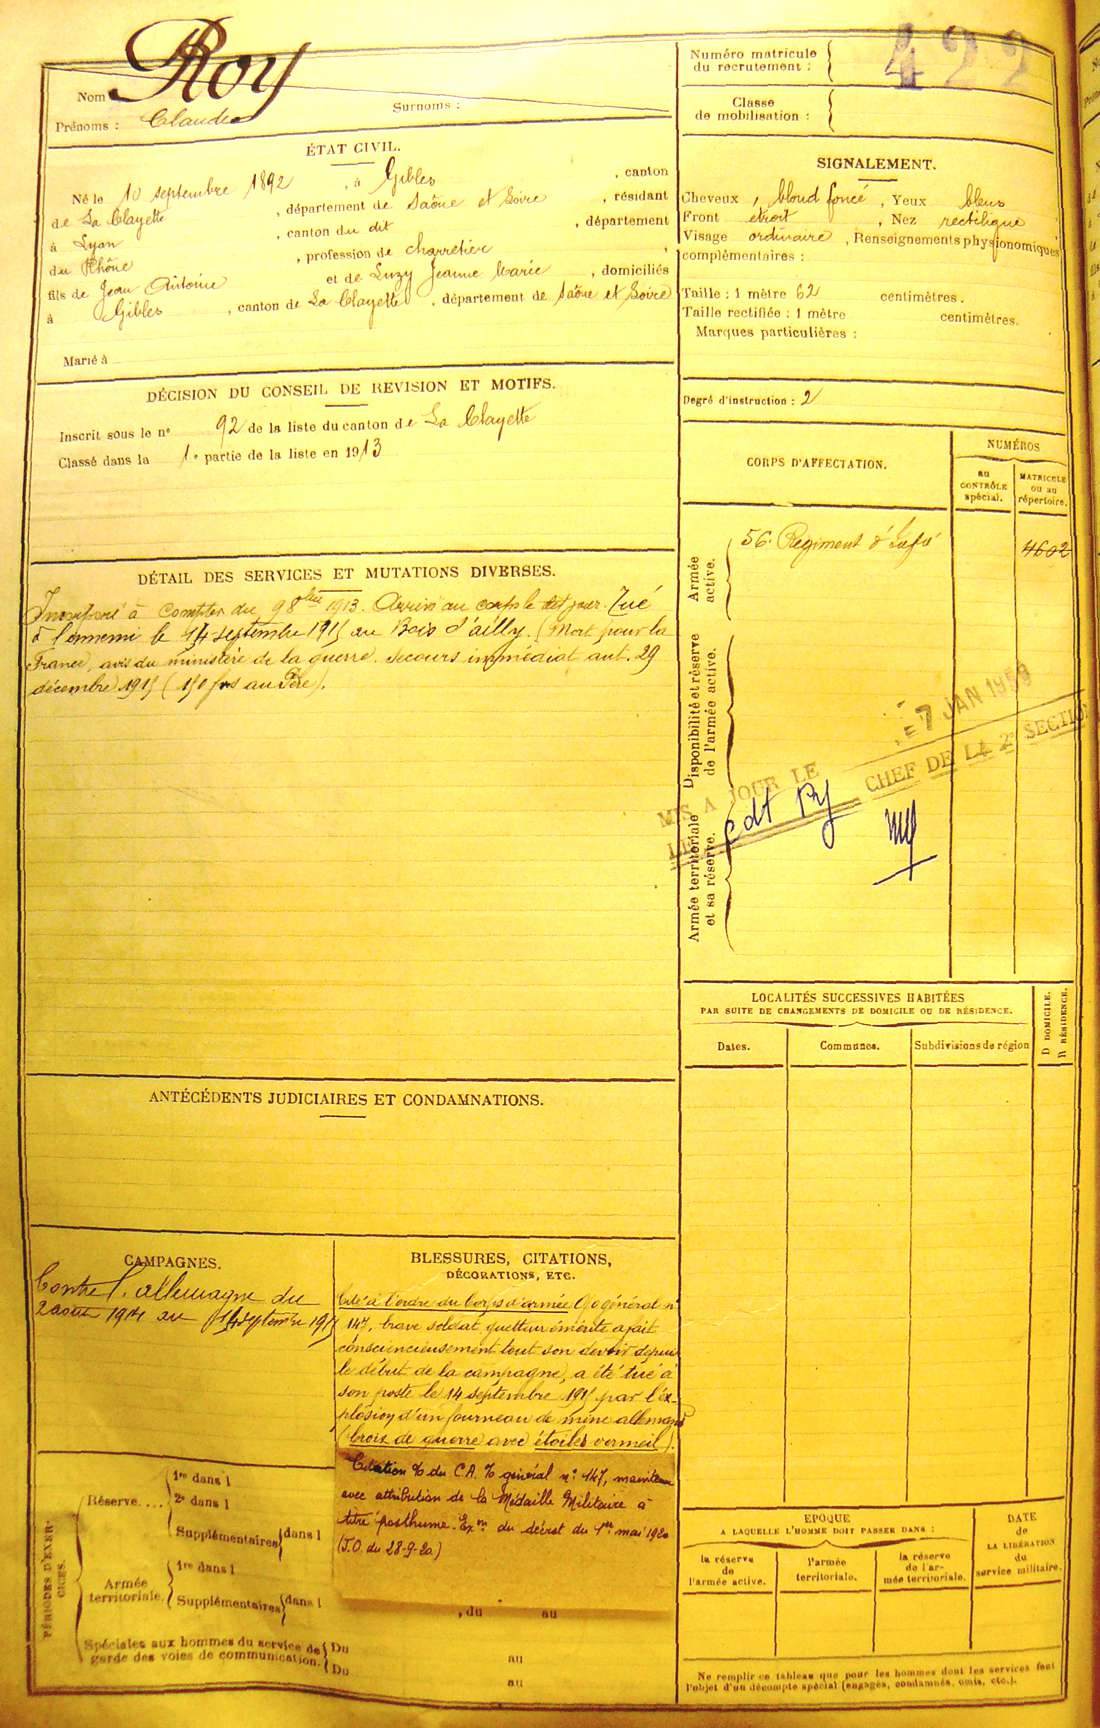 Nom Roy
Surnoms :
Prénoms : Claude
ÉTAT CIVIL.
Né le 10 septembre 1892, à Gibles, canton
de La Clayette, département de Saône et Loire, résidant
à Lyon, canton du dit, département
du Rhône, profession de charretier,
fils de Jean Antoine et de Luzy Jeanne Marie, domiciliés
à Gibles, canton de La Clayette, département de Saône et Loire
Marié à
DÉCISION DU CONSEIL DE REVISION ET MOTIFS.
Inscrit sous le nº 92 de la liste du canton de La Clayette
Classé dans la 1e partie de la liste en 1913
DÉTAIL DES SERVICES ET MUTATIONS DIVERSES.
Incorporé à compter du 9 8bre 1913. Arrivé au corps le dit jour. Tué
à l'ennemi le 14 septembre 1915 au Bois d'ailly. (Mort pour la
France, avis du ministère de la guerre. Secours immédiat aut. 29
décembre 1915 (150 frs au Père).
ANTÉCÉDENTS JUDICIAIRES ET CONDAMNATIONS.
CAMPAGNES.
Contre l'allemagne du
2 aout 1914 au 14 septembre 1915
BLESSURES, CITATIONS,
DÉCORATIONS, ETC.
Cité à l'ordre du Corps d'armée général nº
147, brave soldat guetteur émérite a fait
consciencieusement tout son devoir depuis
le début de la campagne, a été tué à
son poste le 14 septembre 1915 par l'ex-
plosion d'un fourneau de mine allemand
(Croix de guerre avec étoiles vermeil).
Citation % du C.A. % général nº 147, maintenue
avec attribution de la Médaille Militaire à
titre posthume. Exon du décret du 1er mai 1920
(J.O. du 28-9-20.)
, du au
au
au
PÉRIODES D'EXER-
CICES.
Réserve....
1re dans l
2e dans l
Supplémentaires dans l
Armée
territoriale.
1re dans l
Supplémentaires dans l
Spéciales aux hommes du service de
garde des voies de communication.
Du
Du
Numéro matricule
du recrutement :
422
Classe
de mobilisation :
SIGNALEMENT.
Cheveux, blond foncé, Yeux bleus
Front étroit, Nez rectiligne
Visage ordinaire, Renseignements physionomiques
complémentaires :
Taille : 1 mètre 62 centimètres.
Taille rectifiée : 1 mètre centimètres.
Marques particulières :
Degré d'instruction : 2
CORPS D'AFFECTATION.
NUMÉROS
au
CONTRÔLE
spécial.
MATRICULE
ou au
répertoire.
Armée
active.
56e Regiment d'Infie
4602
Disponibilité et réserve
de l'armée active.
MIS A JOUR LE
7 JAN 1959
LE
Cdt
CHEF DE LA 2e SECTION
Armée territoriale
et sa réserve.
LOCALITÉS SUCCESSIVES HABITÉES
PAR SUITE DE CHANGEMENTS DE DOMICILE OU DE RÉSIDENCE.
D DOMICILE.
R RÉSIDENCE.
Dates.
Communes.
Subdivisions de région
EPOQUE
A LAQUELLE L'HOMME DOIT PASSER DANS :
la réserve
de
l'armée active.
l'armée
territoriale.
la réserve
de l'ar-
mée territoriale.
DATE
de
LA LIBÉRATION
du
service militaire.
Ne remplir ce tableau que pour les hommes dont les services font
l'objet d'un décompte spécial (engagés, condamnés, omis, etc.).